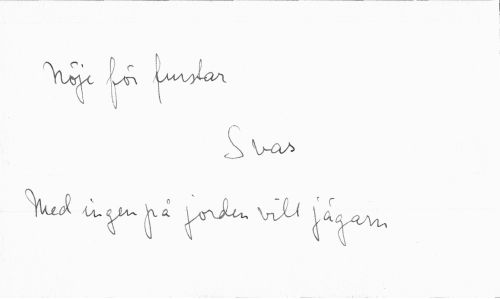 Nöje för furstar
Svas
Med ingen på jorden vill jägarn